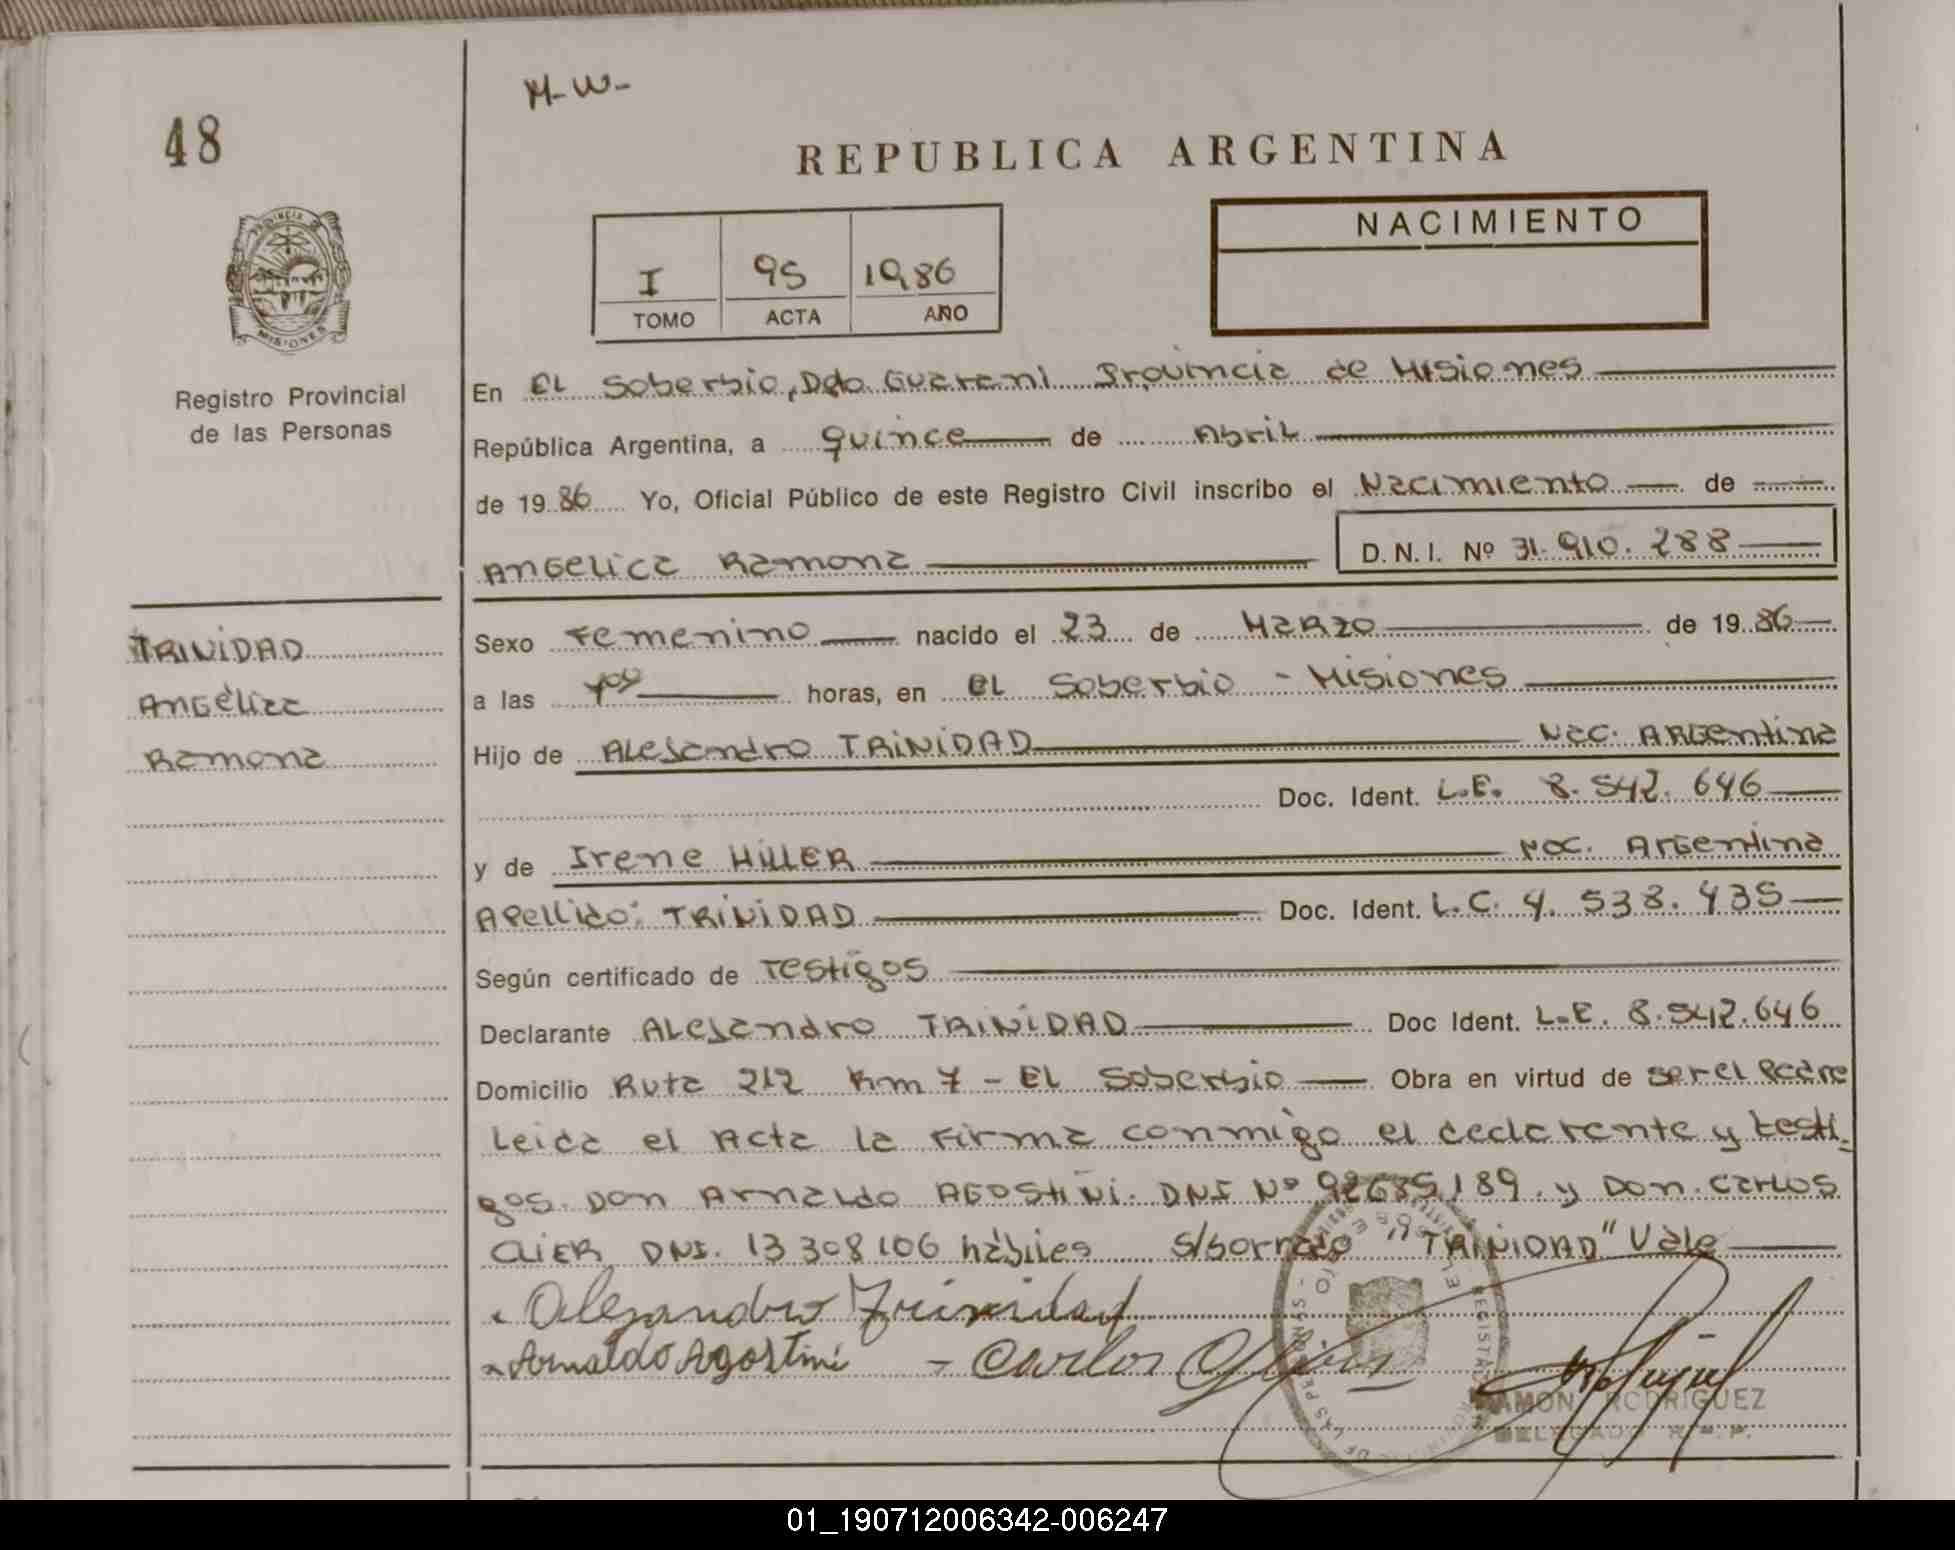 M-W-
48
REPUBLICA ARGENTINA
NACIMIENTO
I 95 1986
TOMO ACTA AÑO
PROVINCIA
MISIONES
Registro Provincial
de las Personas
En EL Soberbio, Dpto Guarani Provincia de Misiones
República Argentina, a quince de Abril
de 19 86 Yo, Oficial Público de este Registro Civil inscribo el Nacimiento de
Angelica Ramona D. N. I. Nº 31.910.288
TRINIDAD
Angélica
Ramona
Sexo Femenino nacido el 23 de Marzo de 19 86
a las horas, en EL Soberbio - Misiones
Hijo de Alejandro TRINIDAD Nac. Argentina
Doc. Ident. L.E. 8.542.646
y de Irene HILLER Nac. Argentina
Apellido: TRINIDAD Doc. Ident. L.C. 4.538.435
Según certificado de Testigos
Declarante Alejandro TRINIDAD Doc Ident. L.E. 8.542.646
Domicilio Ruta 212 Km 7 - EL Soberbio Obra en virtud de ser el Padre
Leida el Acta la Firma conmigo el declarante y testi-
gos. Don Arnaldo Agostini. DNI Nº 92635189 y Don Carlos
DNI. 13308106 hábiles s/borrado "TRINIDAD" Vale
Alejandro Trinidad
Arnaldo Agostini - Carlos
RAMON RODRIGUEZ
DELEGADO R.P.P.
01_190712006342-006247